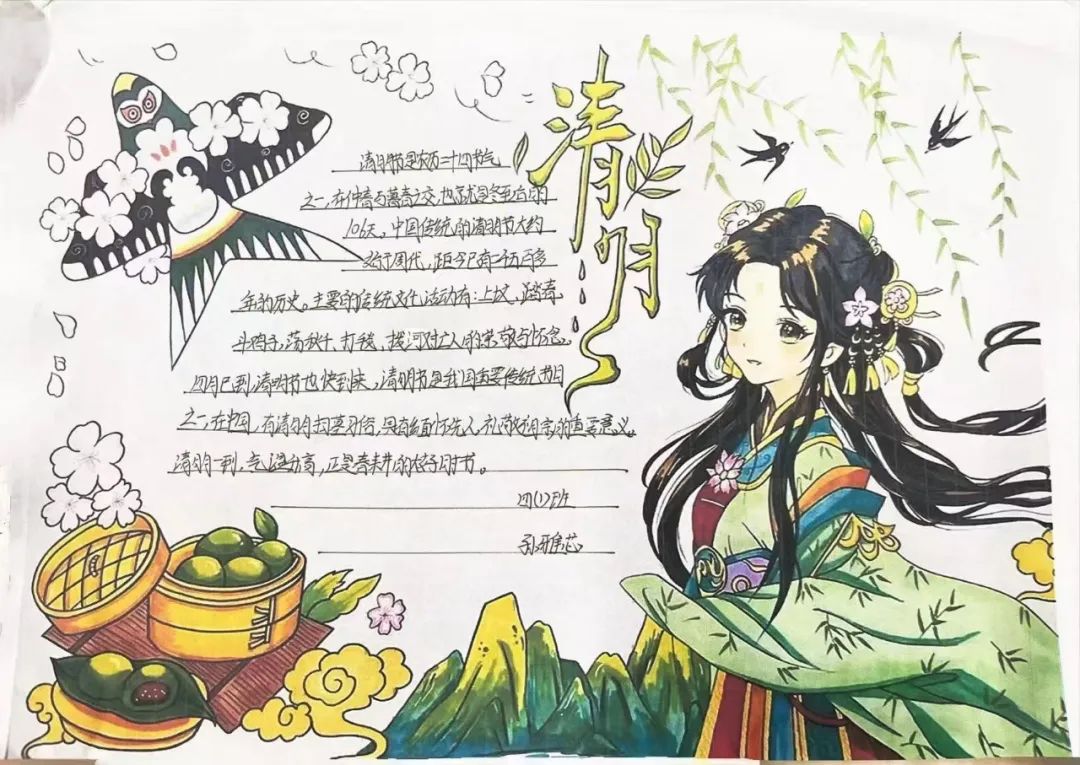 清明
清明节是农历二十四节气
之一,在仲春与暮春之交,也就是冬至后的
106天。中国传统的清明节大约
始于周代,距今已有二千五百多
年的历史。主要的传统文化活动有:上坟,踏青
斗鸡子,荡秋千,打毯,拔河对亡人的哀思与怀念。
四月已到,清明节也快到来,清明节是我国重要传统节日
之一,在中国,有清明扫墓习俗,具有缅怀先人礼敬祖宗的重要意义。
清明一到,气温升高,正是春耕的大好时节。
四(1)班
孙雅芯